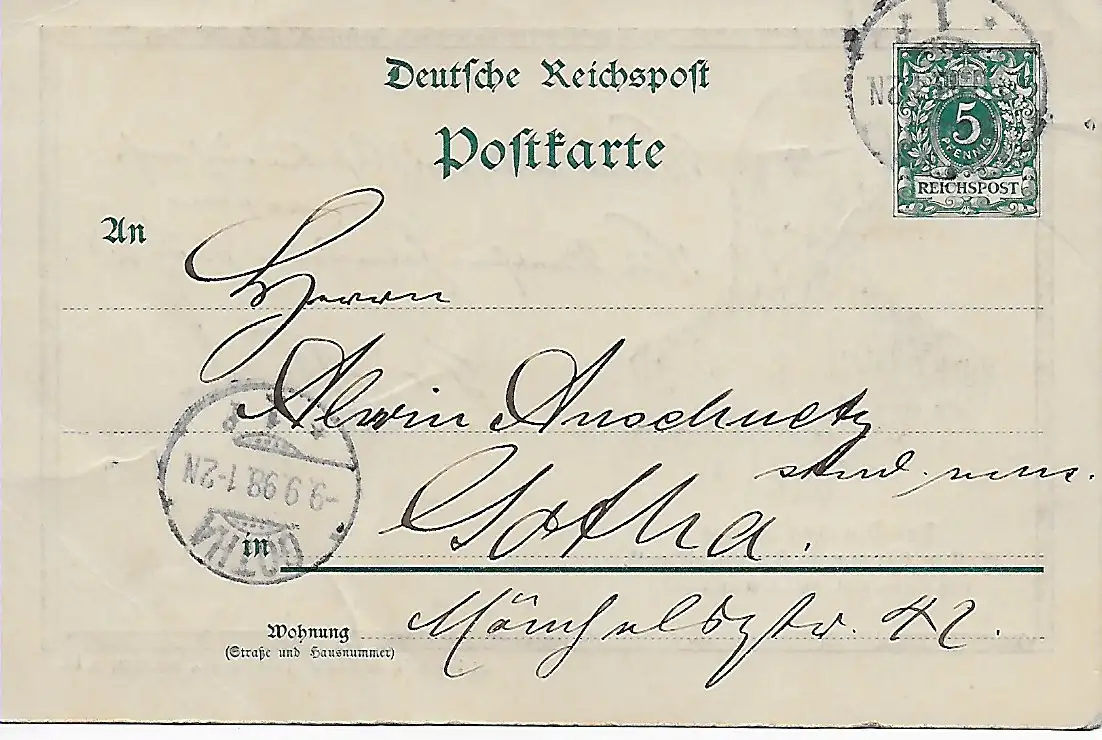 Deutsche Reichspost
Postkarte
5
PFENNIG
REICHSPOST
An
Herrn
Alwin Anschuetz
Gotha.
in
GOTHA
-9.9.98.1-2N
Wohnung
(Straße und Hausnummer)
Mönchelsstr. 42.